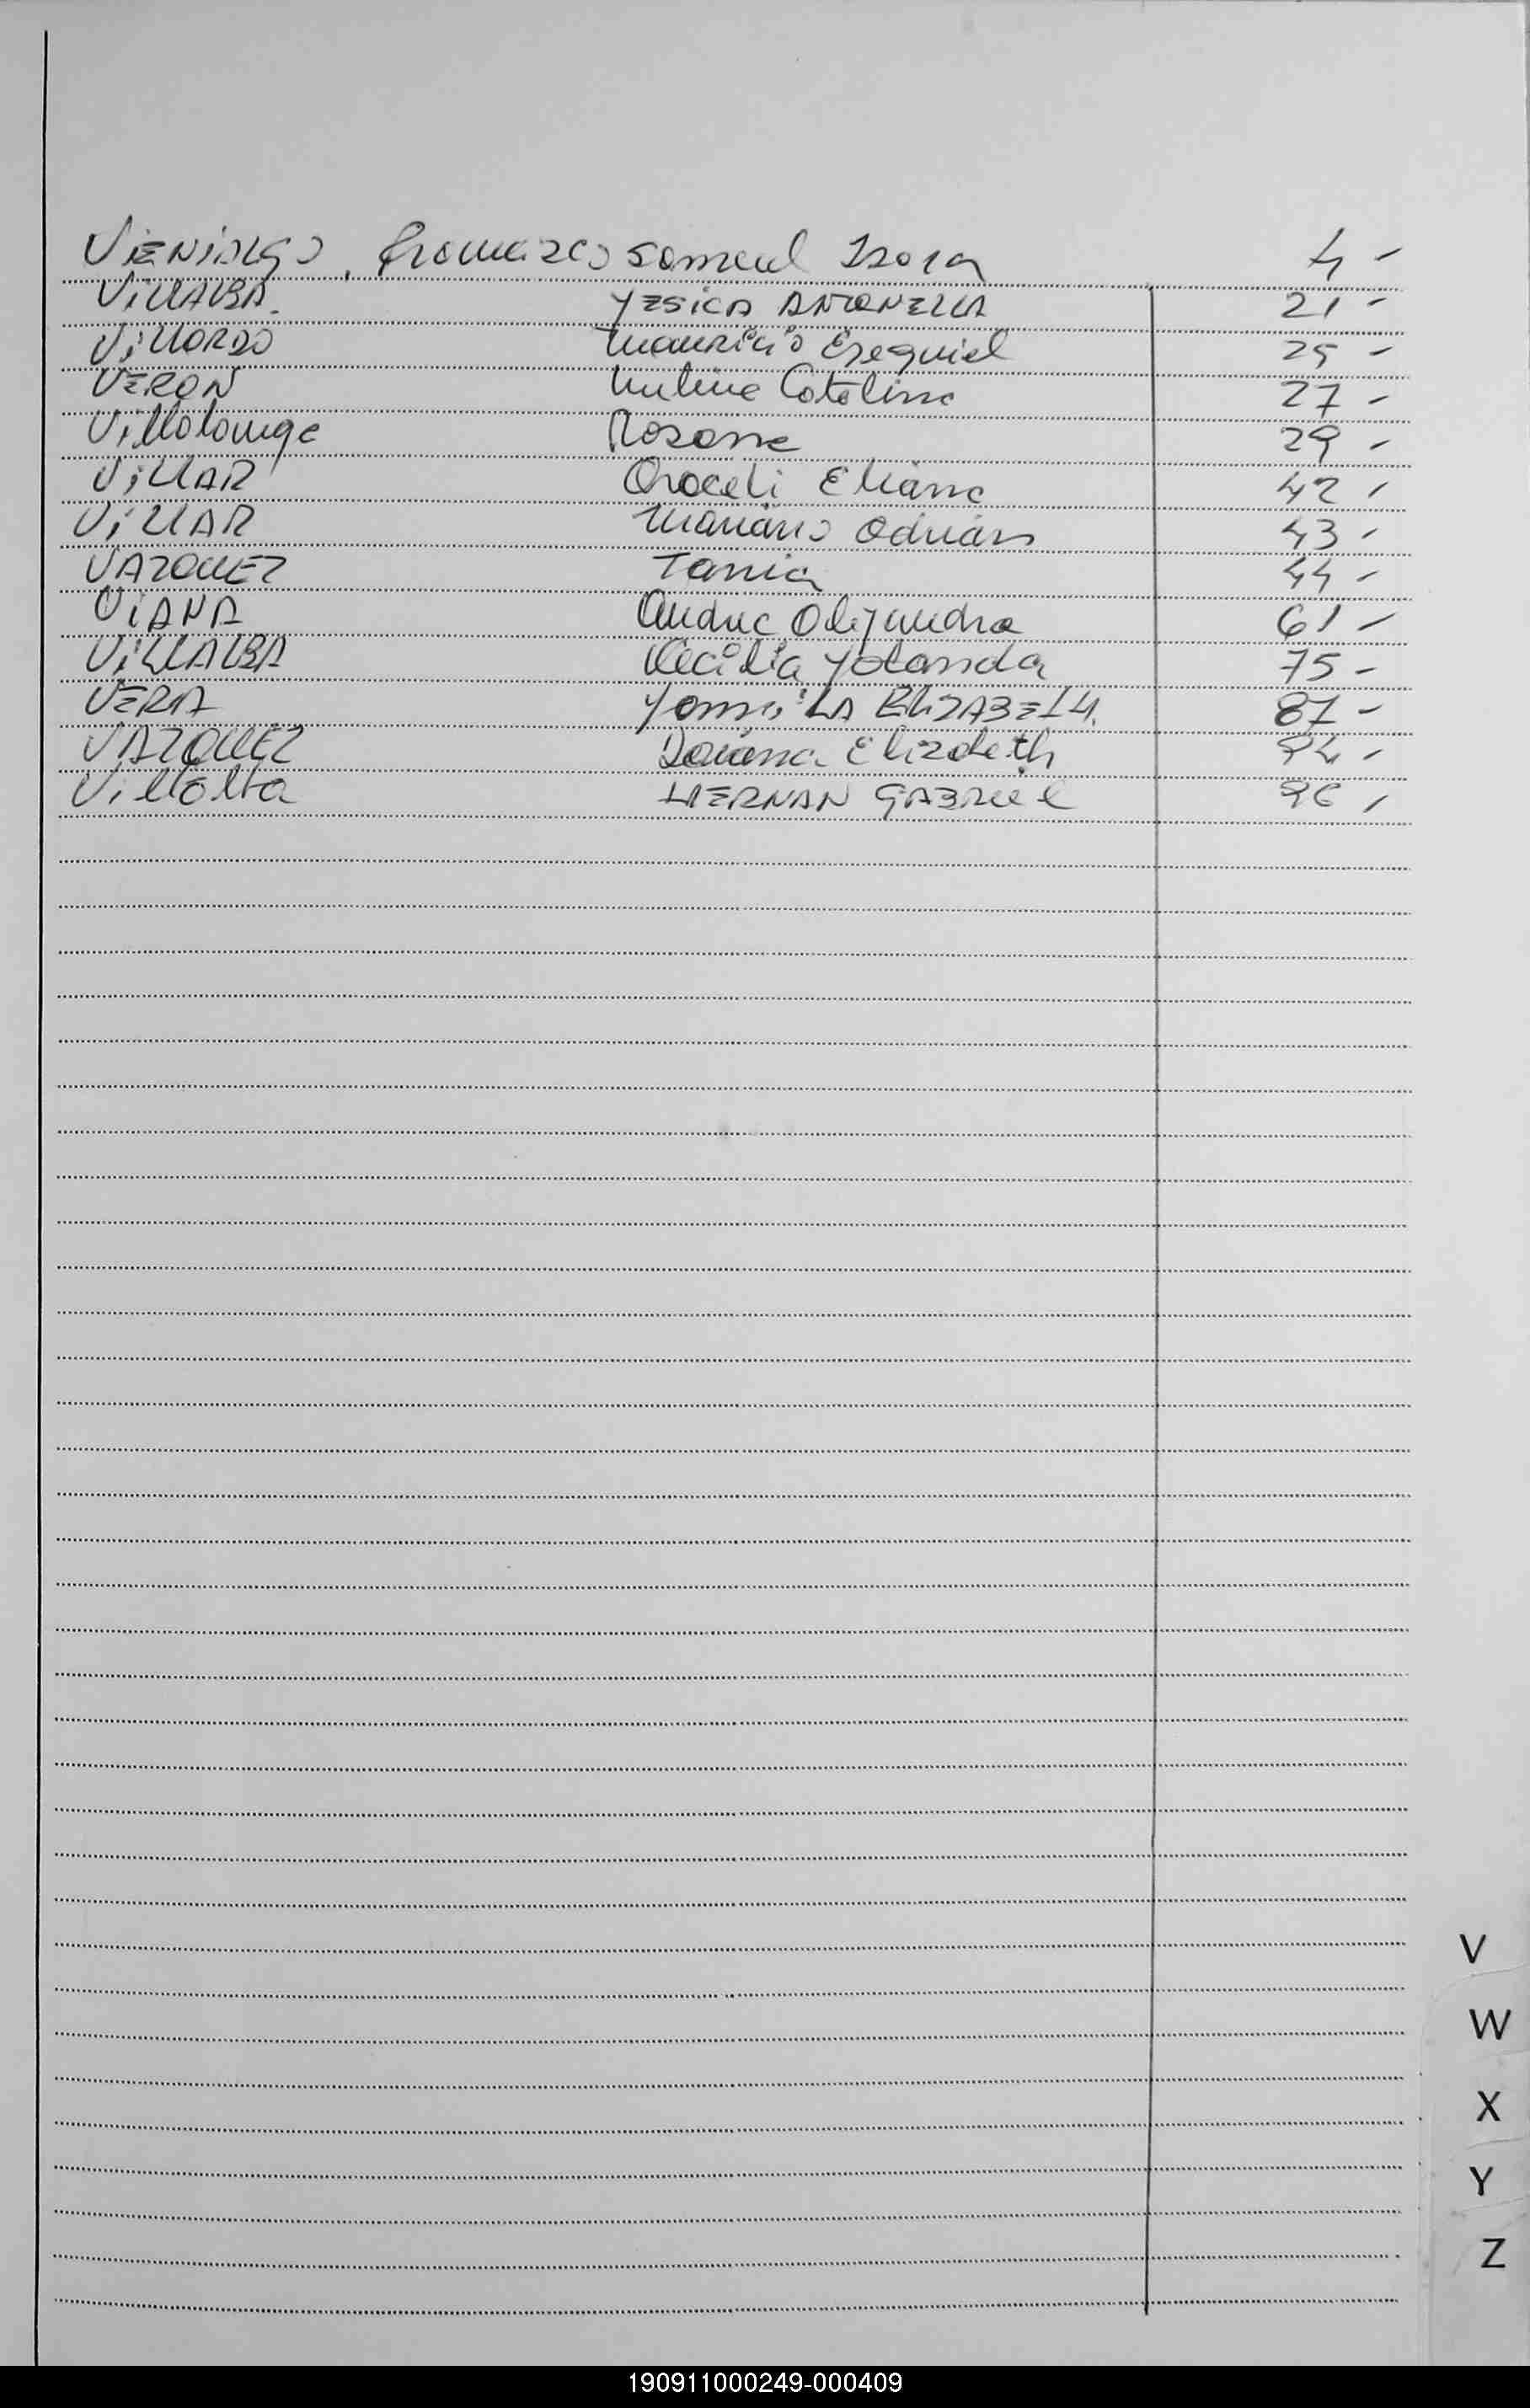 Samuel Isora 4 -
VILLALBA. YESICA ANTONELLA 21 -
VILLORDO Mauricio Ezequiel 25 -
VERON Catalina 27 -
Villalonga Rosana 29 -
VILLAR Araceli Eliana 42 -
VILLAR Mariano Adrián 43 -
VAZQUEZ Tania 44 -
VIANA Alejandra 61 -
VILLALBA Cecilia Yolanda 75 -
VERA YAMILA ELIZABETH. 87 -
VAZQUEZ Daiana Elizabeth 94 -
Villalba HERNAN GABRIEL 96 -
V
W
X
Y
Z
190911000249-000409